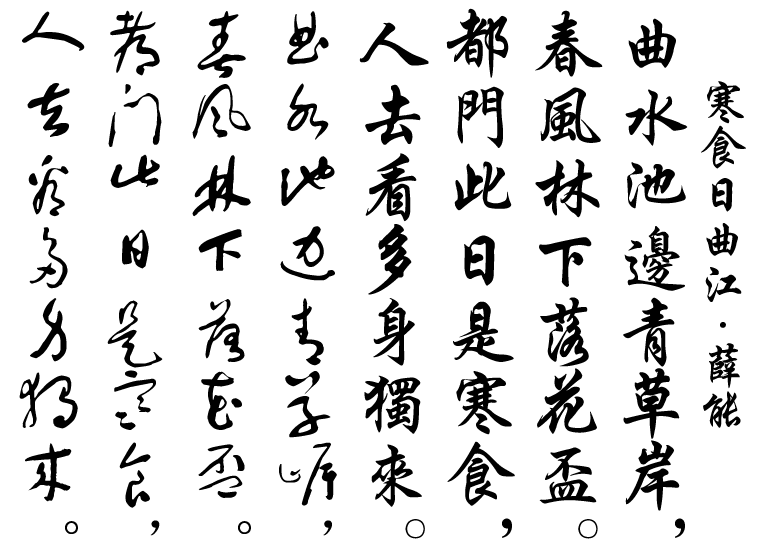 寒食日曲江·薛能
曲水池邊青草岸，
春風林下落花盃。
都門此日是寒食，
人去看多身獨來。
曲水池边青草岸，
春風林下落花盃。
都门此日是寒食，
人去看多身獨來。